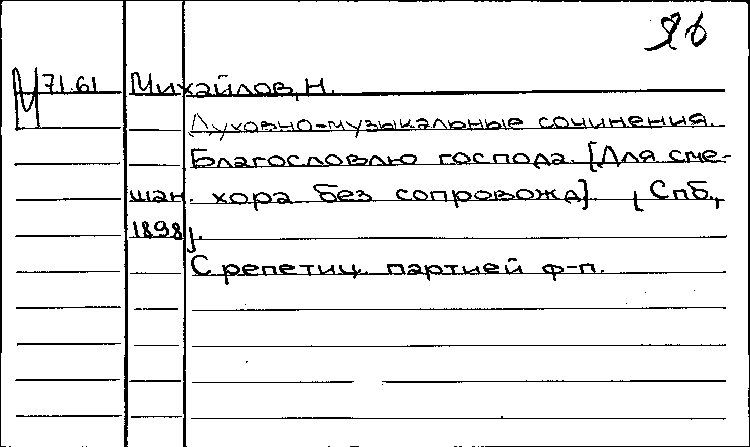 Яб
М 71.61 Михайлов, Н.
Духовно-музыкальные сочинения.
Благословлю господа. [Для сме-
шан. хора без сопровожд]. [Спб.,
1898].
С репетиц. партией ф-п.